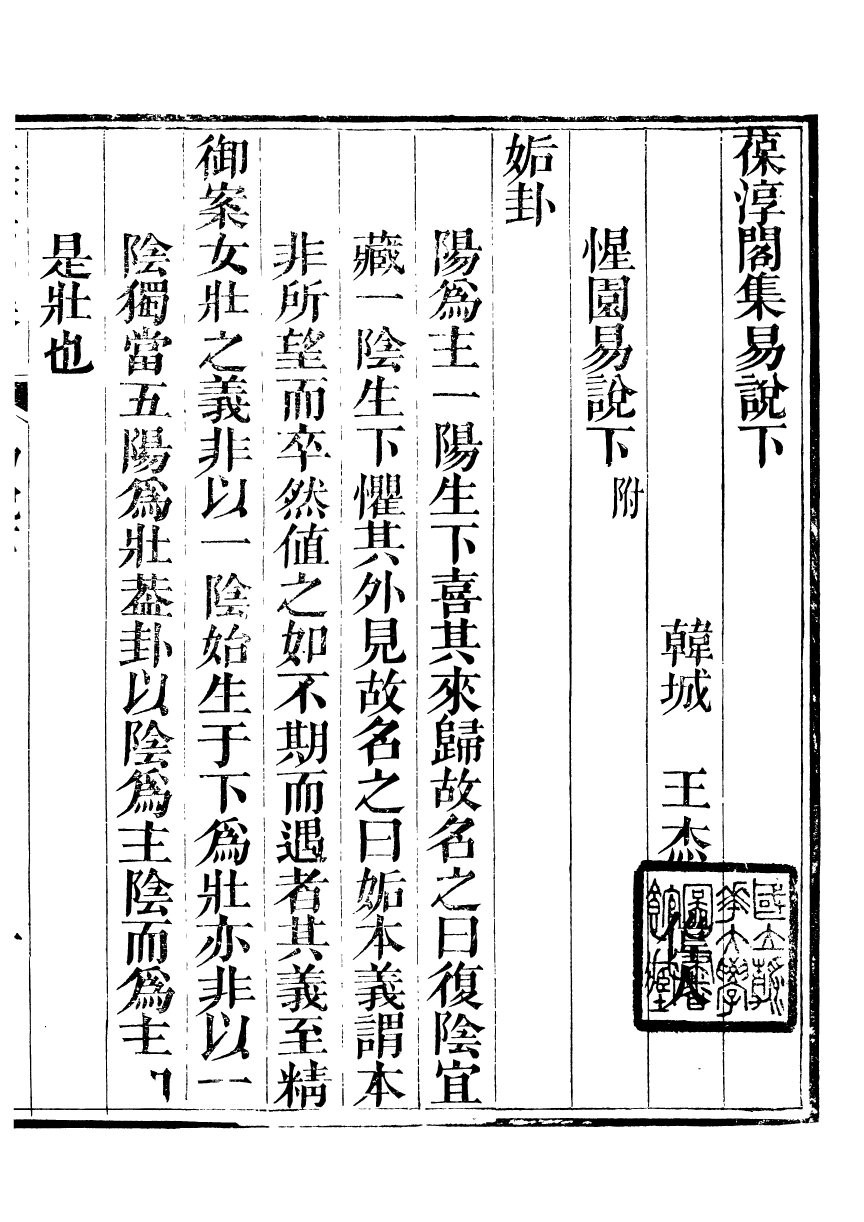 葆淳閣集易說下
韓城　王杰
惺園易說下附
姤卦
陽爲主一陽生下喜其來歸故名之曰復陰宜
藏一陰生下懼其外見故名之曰姤本義謂本
非所望而卒然値之如不期而遇者其義至精
御案女壯之義非以一陰始生于下爲壯亦非以一
陰獨當五陽爲壯葢卦以陰爲主陰而爲主
是壯也
國立清華大學圖書館藏